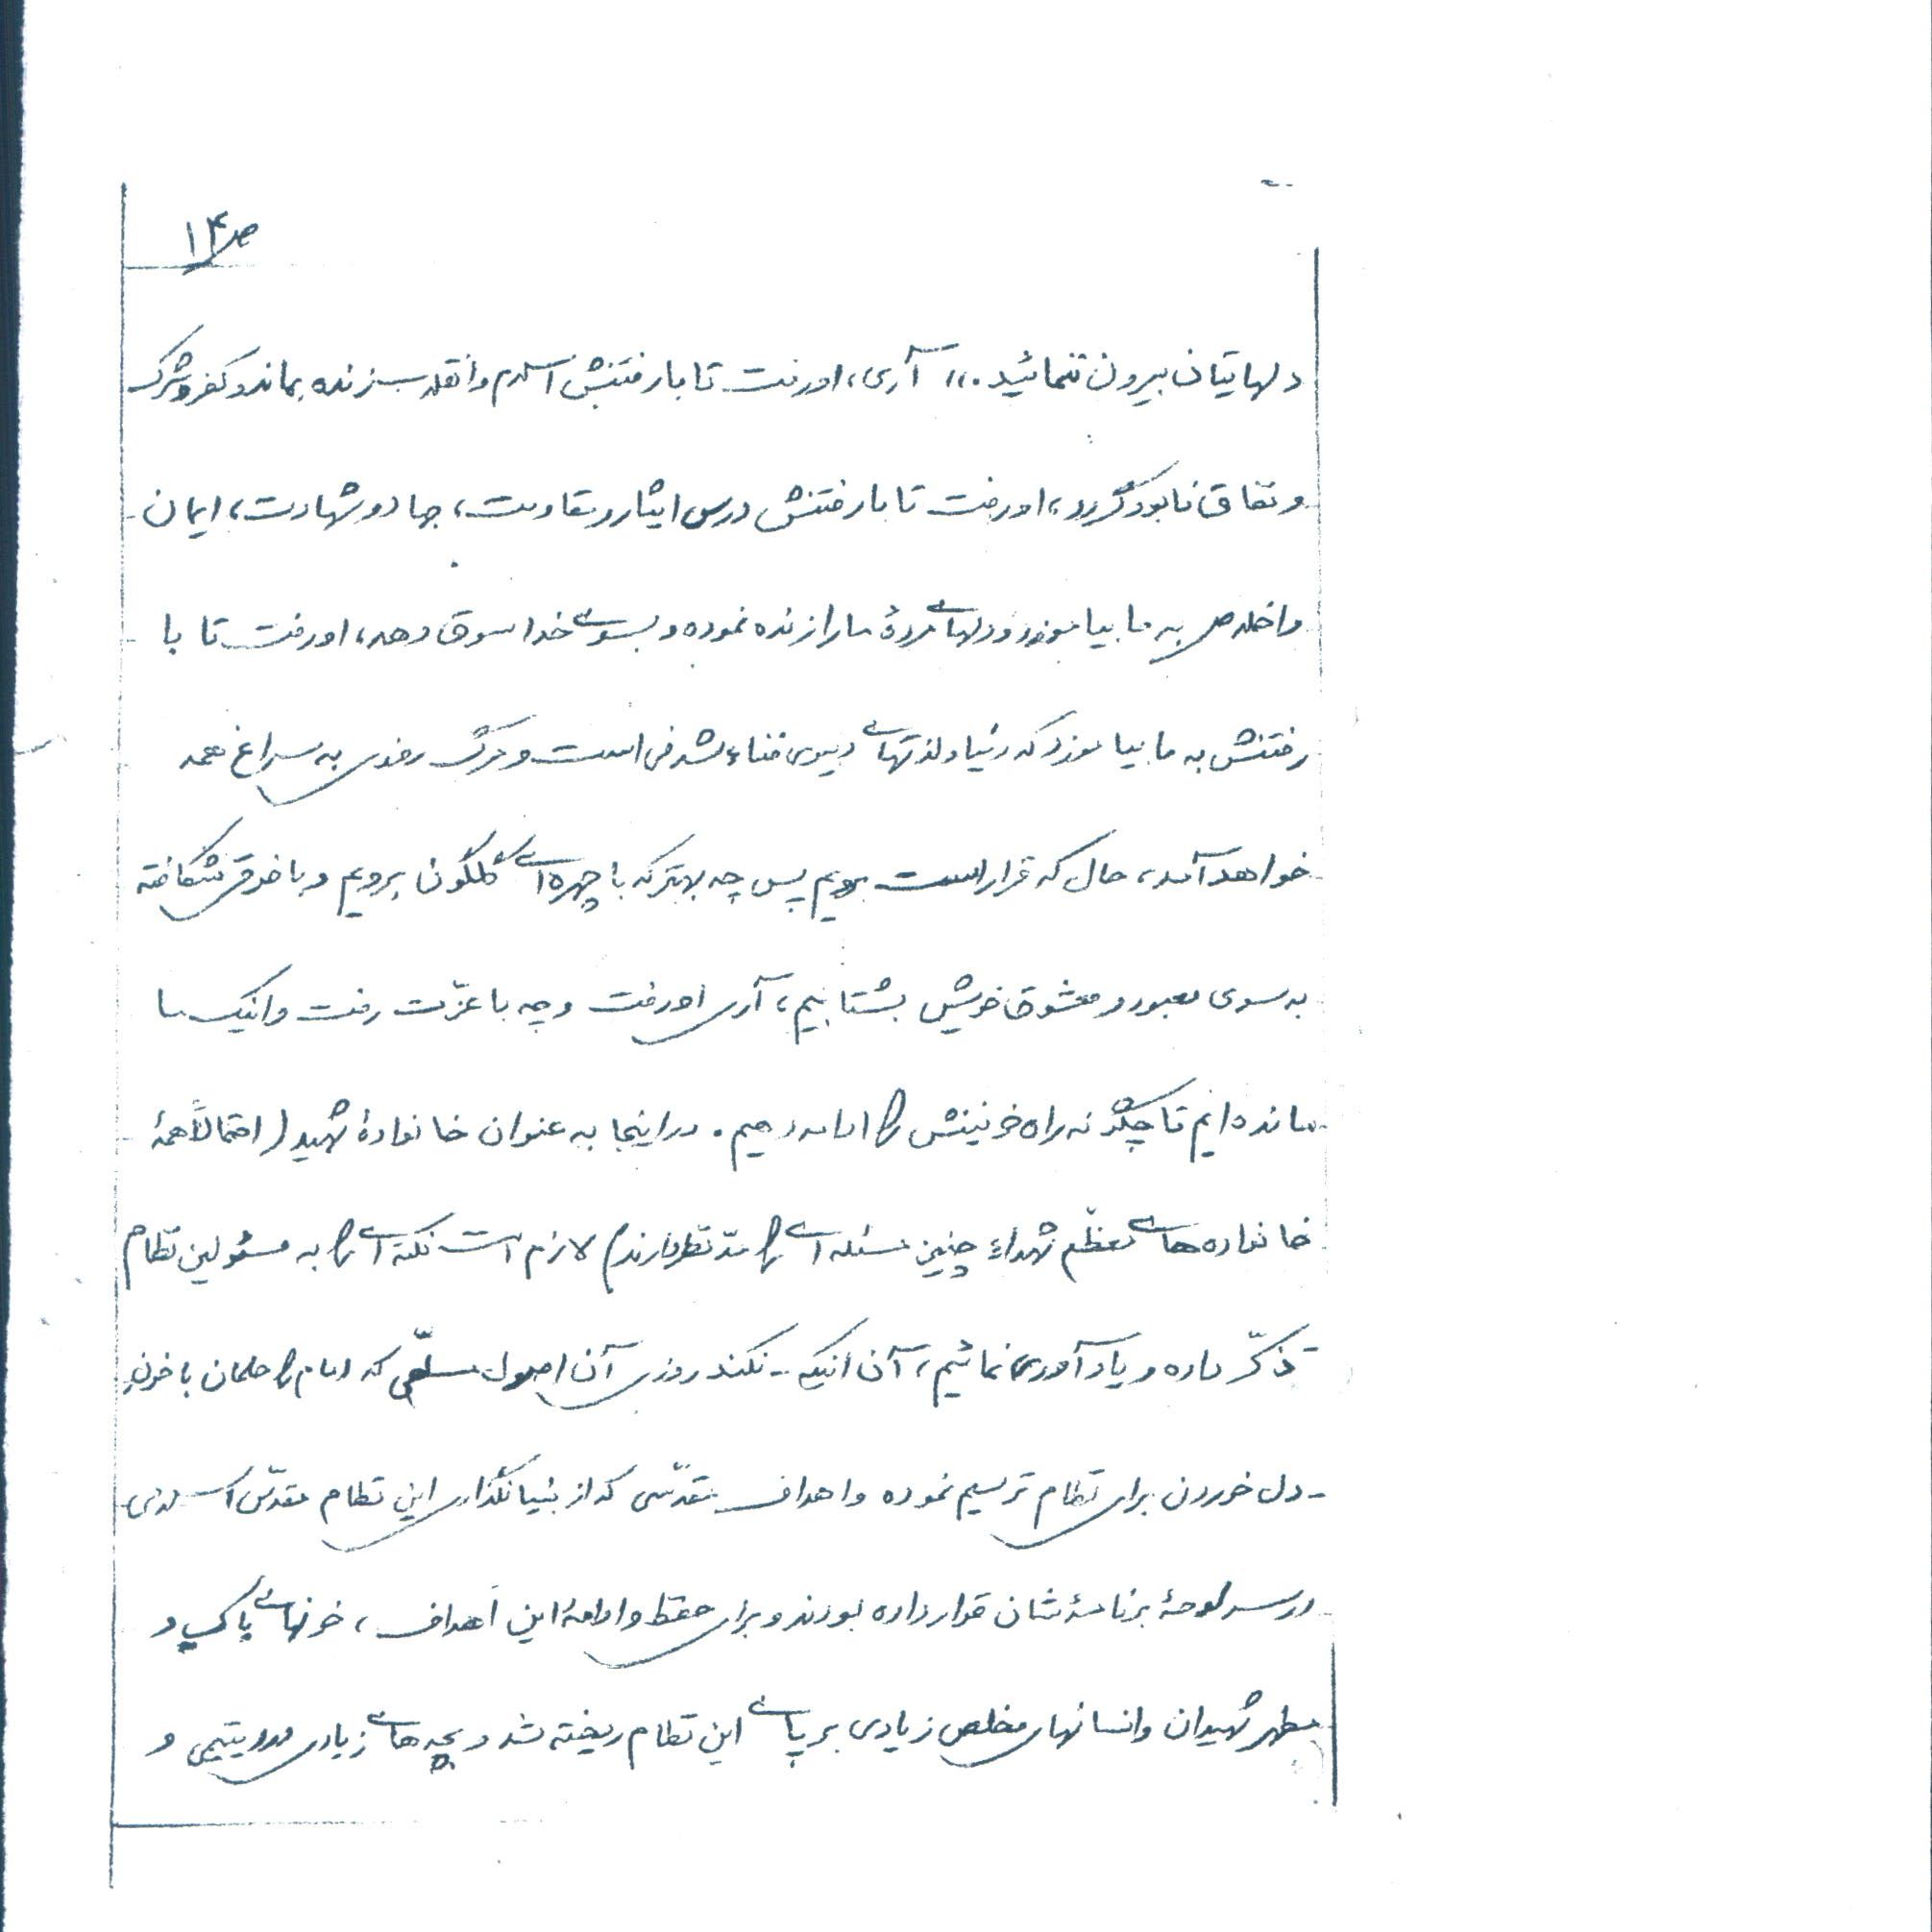 ص۱۴
دلهایتان بیرون ننمائید.،، آری، او رفت تا با رفتنش اسلام و انقلاب زنده بماند و کفر و شرک
و نفاق نابود گردد، او رفت تا با رفتنش درس ایثار و مقاومت، جهاد و شهادت، ایمان
و اخلاص به ما بیاموزد و دلهای مردهٔ ما را زنده نموده و بسوی خدا سوق دهد، او رفت تا با
رفتنش به ما بیاموزد که دنیا و لذتهای دنیوی فناء شدنی است و مرگ روزی به سراغ همه
خواهد آمد، حال که قرار است برویم پس چه بهتر که با چهره‌ای گلگون برویم و با فرق شکافته
به سوی معبود و معشوق خویش بشتابیم، آری او رفت و چه با عزّت رفت و اینک ما
مانده‌ایم تا چگونه راه خونینش را ادامه دهیم. در اینجا به عنوان خانوادهٔ شهید (احتمالاً همهٔ
خانواده‌های معظّم شهداء چنین مسئله‌ای را مدّ نظر دارند) لازم است نکته‌ای را به مسئولین نظام
تذکّر داده و یادآوری نمائیم، آن اینکه - نکند روزی آن اصول مسلّمی که امام راحلمان با خونِ
- دل خوردن برای نظام ترسیم نموده و اهداف مقدّسی که از بنیانگذاری این نظام مقدّس اسلامی
در سرلوحهٔ برنامهٔ شان قرار داده بودند و برای حفظ و ادامهٔ این اَهداف، خونهای پاک و
مطهر شهیدان و انسانهای مخلص زیادی بر پای این نظام ریخته شد و بچه‌های زیادی درد یتیمی و